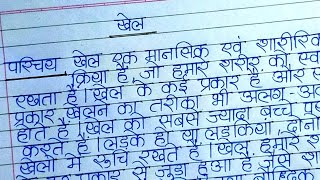 खेल
परिचय खेल एक मानसिक एवं शारीरिक
क्रिया है, जो हमारे शरीर को स्व
रखता है। खेल के कई प्रकार है और स
प्रकार खेलने का तरीका भी अलग-अल
होते है। खेल को सबसे ज्यादा बच्चे प
करते है। लड़के हो या लड़किया, दोनो
खेलो में रुचि रखते है। खेल हमारे श
से जुड़ा हुआ है जैसे श